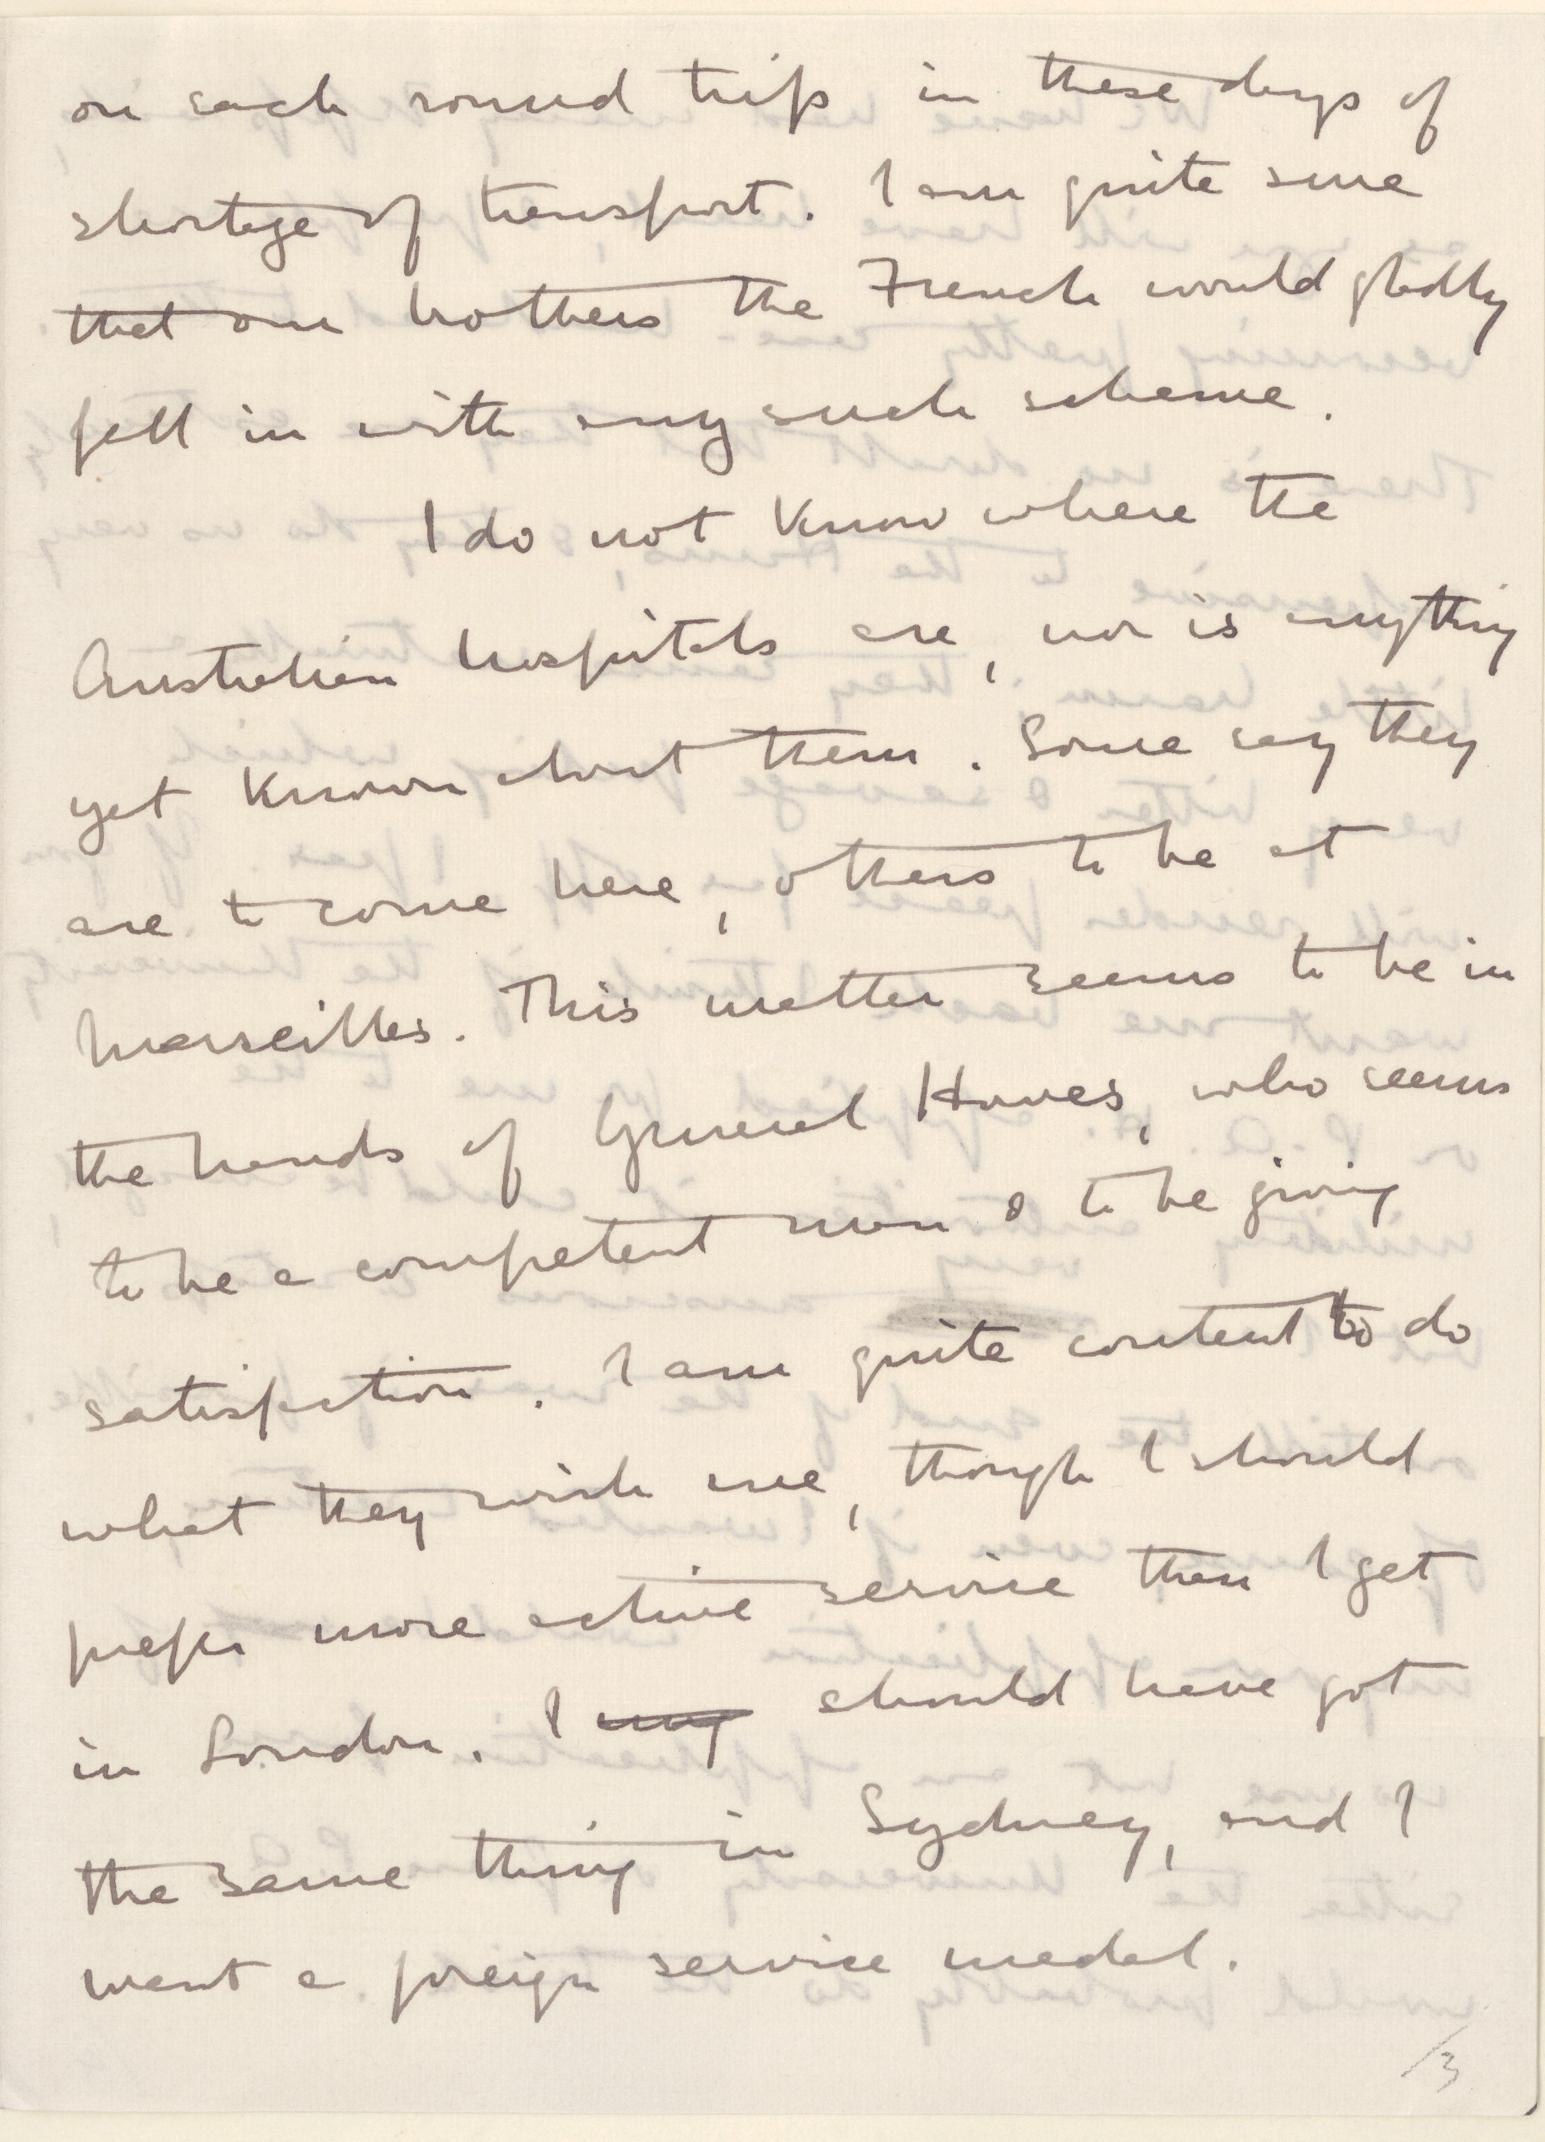 on each round trip in these days of
shortage of transport. I am quite sure
that our brothers the French would gladly
fall in with any such scheme.
I do not know where the
Australian hospitals are, nor is anything
yet known about them. Some say they
are to come here, others to be at
Marseilles. This matter seems to be in
the hands of General Howes, who seems
to be a competent man & to be giving
satisfaction. I am quite content to do
what they wish me, though I should
prefer more active service than I get
in London. I may should have got
the same thing in Sydney, and I
want a foreign service medal.
/3